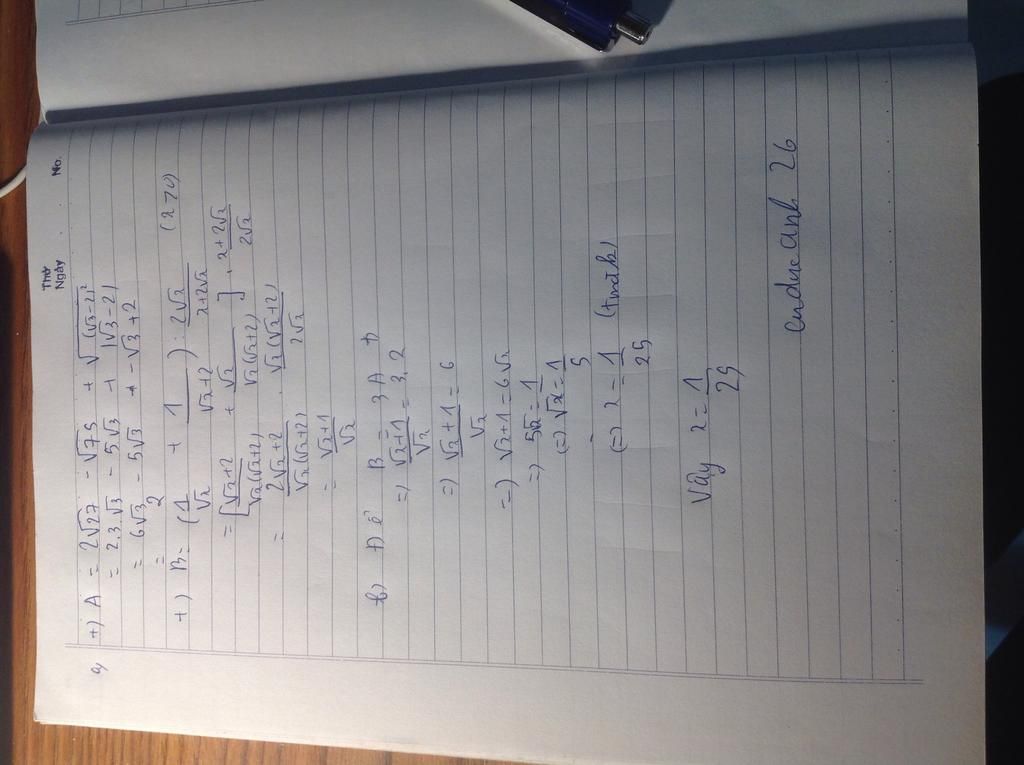 Thứ
Ngày No.
a) +) A = 2√27 - √75 + √(√3-2)²
= 2.3.√3 - 5√3 + |√3-2|
= 6√3 - 5√3 + -√3+2
= 2
+) B = (1/√x + 1/√x+2) : 2√x/x+2√x (x>0)
= [√x+2/√x(√x+2) + √x/√x(√x+2)] . x+2√x/2√x
= 2√x+2/√x(√x+2) . √x(√x+2)/2√x
= √x+1/√x
b) Để B = 3A thì
=) √x+1/√x = 3.2
=) √x+1/√x = 6
=) √x+1 = 6√x
=) 5√x = 1
(=) √x = 1/5
(=) x = 1/25 (tmđk)
Vậy x = 1/25
anducanh 26